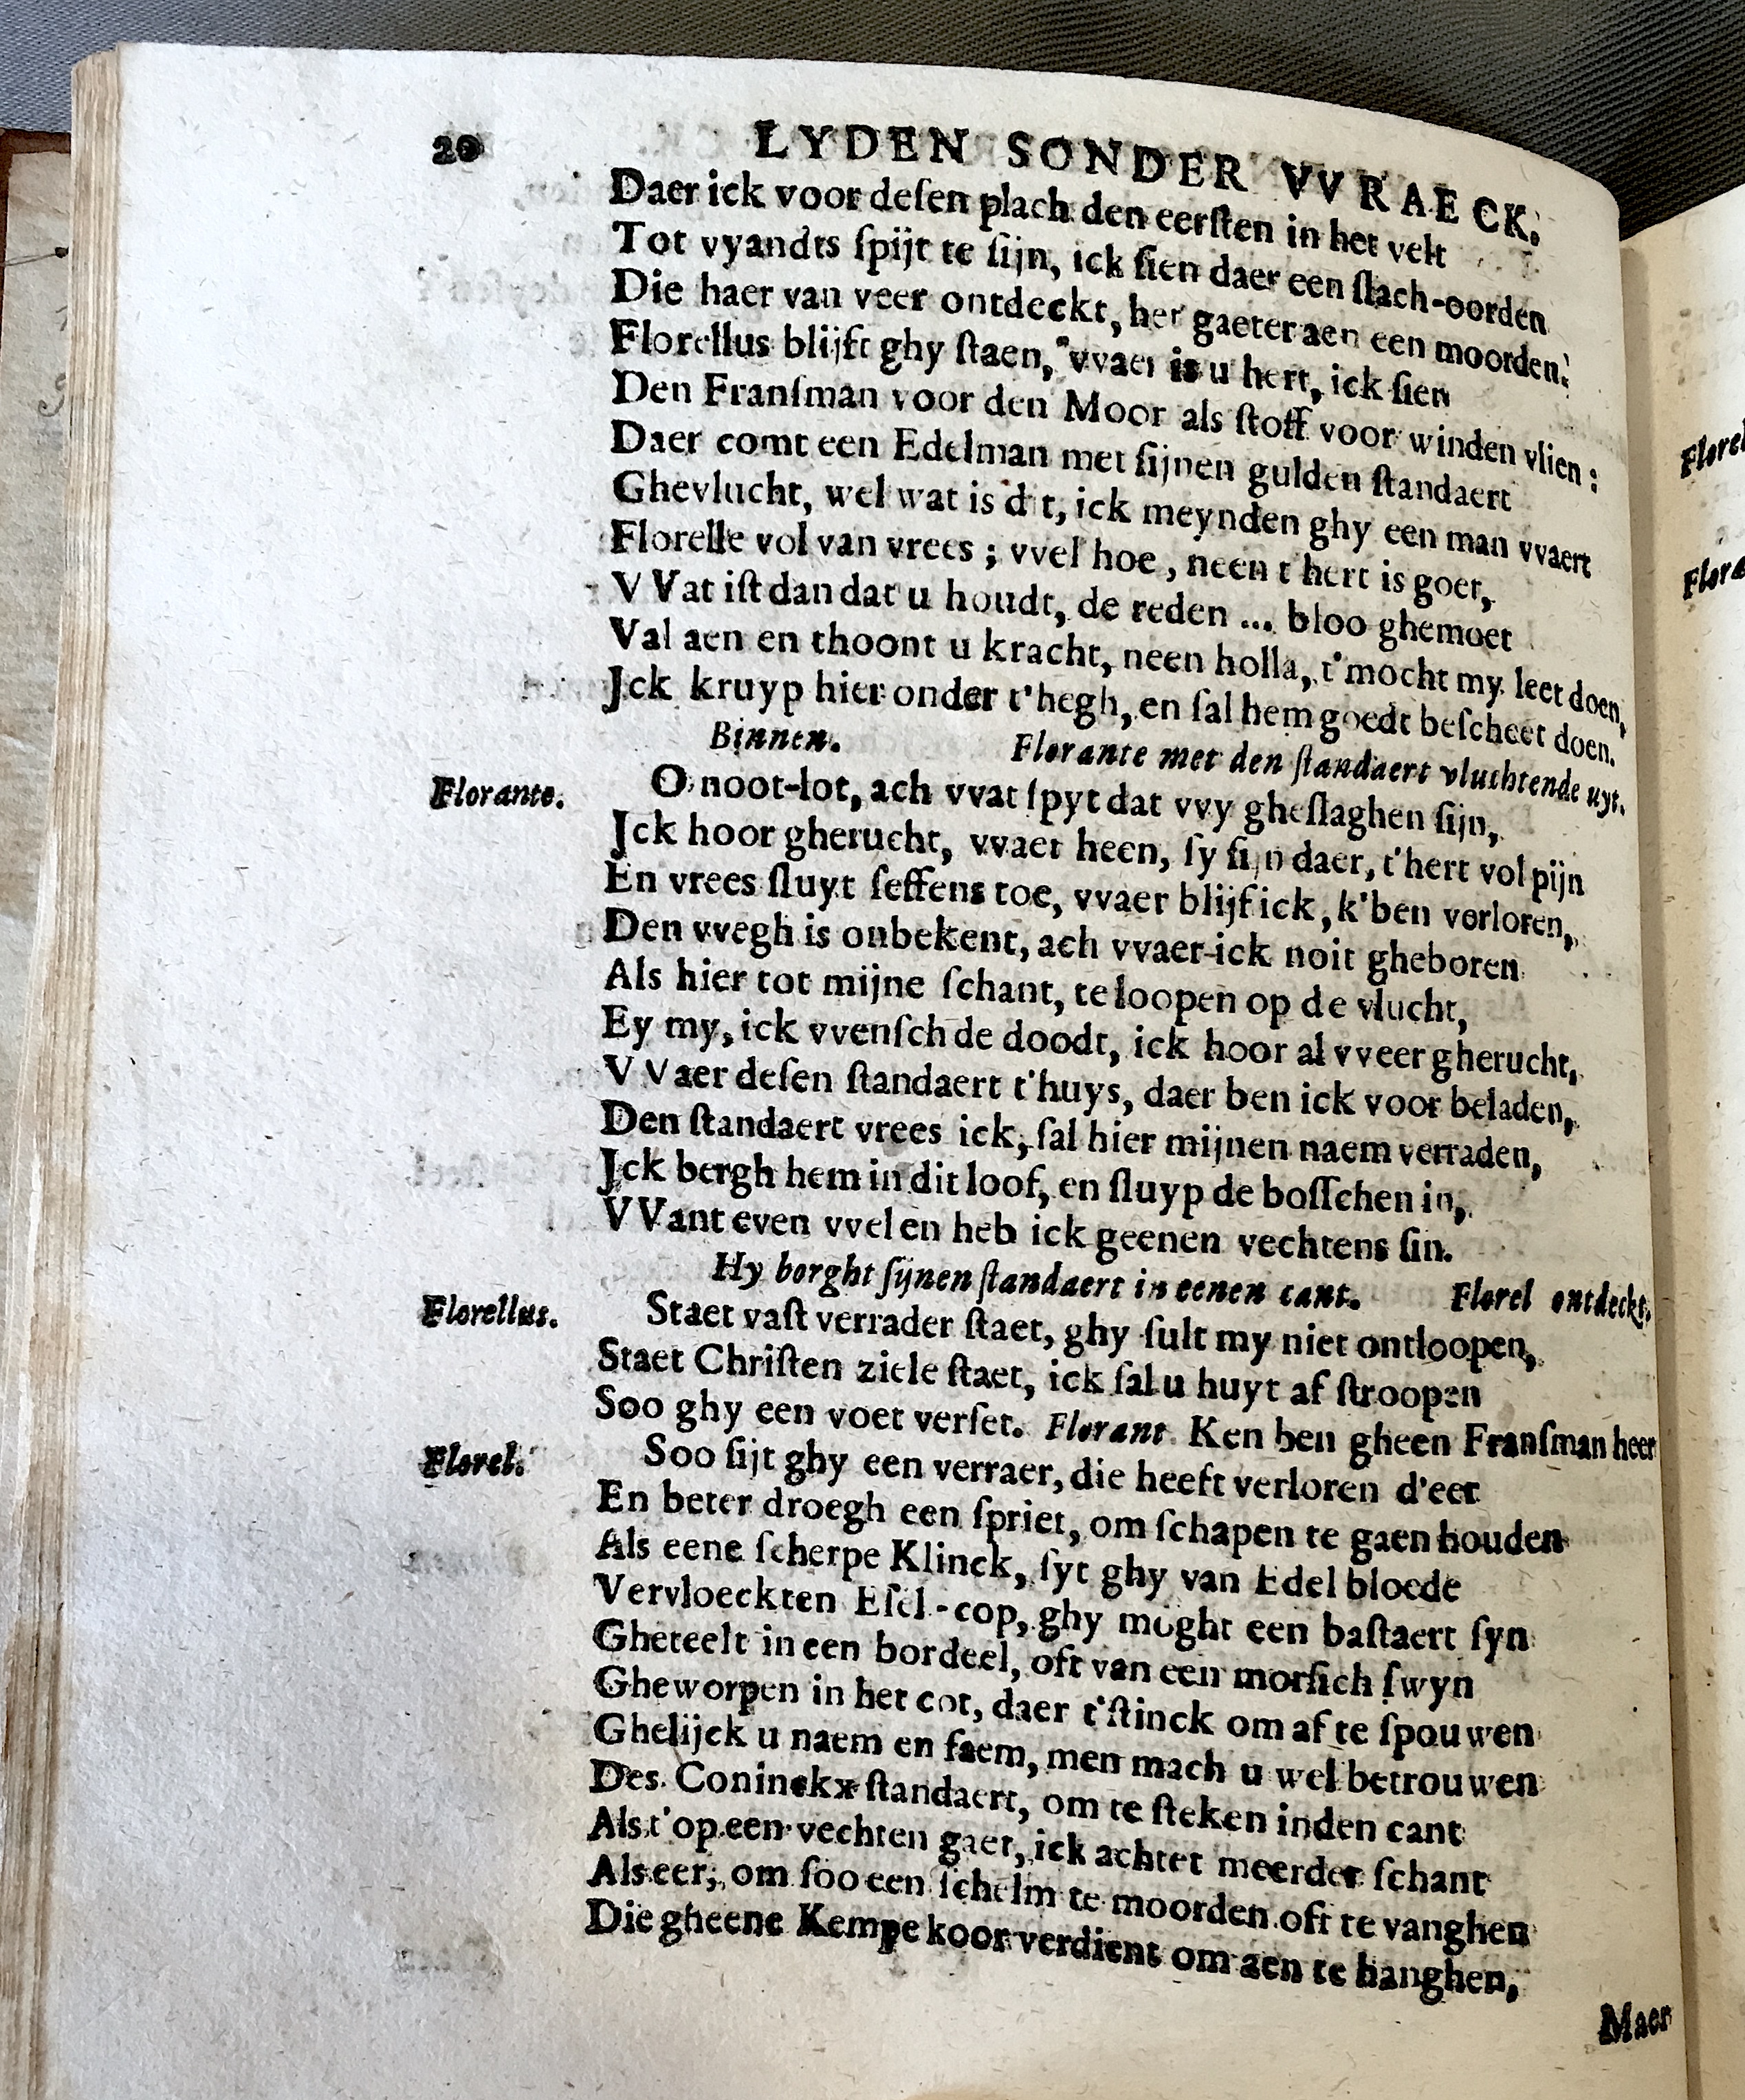 20 LYDEN SONDER VVRAECK.
Daer ick voor deſen plach den eerſten in het velt
Tot vyandts ſpijt te ſijn, ick ſien daer een ſlach-oorden
Die haer van veer ontdeckt, het gaeter aen een moorden.
Florellus blijft ghy ſtaen, vvaer is u hert, ick ſien
Den Franſman voor den Moor als ſtoff voor winden vlien;
Daer comt een Edelman met ſijnen gulden ſtandaert
Ghevlucht, wel wat is dit, ick meynden ghy een man vvaert
Florelle vol van vrees; vvel hoe, neen t hert is goet,
VVat iſt dan dat u houdt, de reden ... bloo ghemoet
Val aen en thoont u kracht, neen holla, t'mocht my leet doen,
Jck kruyp hier onder t'hegh, en ſal hem goedt beſcheet doen.
Binnen. Florante met den ſtandaert vluchtende uyt.
Florante. O noot-lot, ach vvat ſpyt dat vvy gheſlaghen ſijn,
Jck hoor gherucht, vvaer heen, ſy ſijn daer, t'hert vol pijn
En vrees ſluyt ſeffens toe, vvaer blijf ick, k'ben verloren,
Den vvegh is onbekent, ach vvaer-ick noit gheboren
Als hier tot mijne ſchant, te loopen op de vlucht,
Ey my, ick vvenſch de doodt, ick hoor al vveer gherucht,
VVaer deſen ſtandaert t'huys, daer ben ick voor beladen,
Den ſtandaert vrees ick, ſal hier mijnen naem verraden,
Jck bergh hem in dit loof, en ſluyp de boſſchen in,
VVant even vvel en heb ick geenen vechtens ſin.
Hy borght ſijnen ſtandaert in eenen cant. Florel ontdeckt.
Florellus. Staet vaſt verrader ſtaet, ghy ſult my niet ontloopen,
Staet Chriſten ziele ſtaet, ick ſal u huyt af ſtroopen
Soo ghy een voet verſet. Florant. Ken ben gheen Franſman heer
Florel. Soo ſijt ghy een verraer, die heeft verloren d'eer
En beter droegh een ſpriet, om ſchapen te gaen houden
Als eene ſcherpe Klinck, ſyt ghy van Edel bloede
Vervloeckten Eſel-cop, ghy moght een baſtaert ſyn
Gheteelt in een bordeel, oft van een morſich ſwyn
Gheworpen in het cot, daer t'ſtinck om af te ſpouwen
Ghelijck u naem en faem, men mach u wel betrouwen
Des Coninckx ſtandaert, om te ſteken inden cant
Als t'op een vechten gaet, ick achtet meerder ſchant
Als eer, om ſoo een ſchelm te moorden oft te vanghen
Die gheene Kempe koor verdient om aen te hanghen,
Maer
Florel
Flora